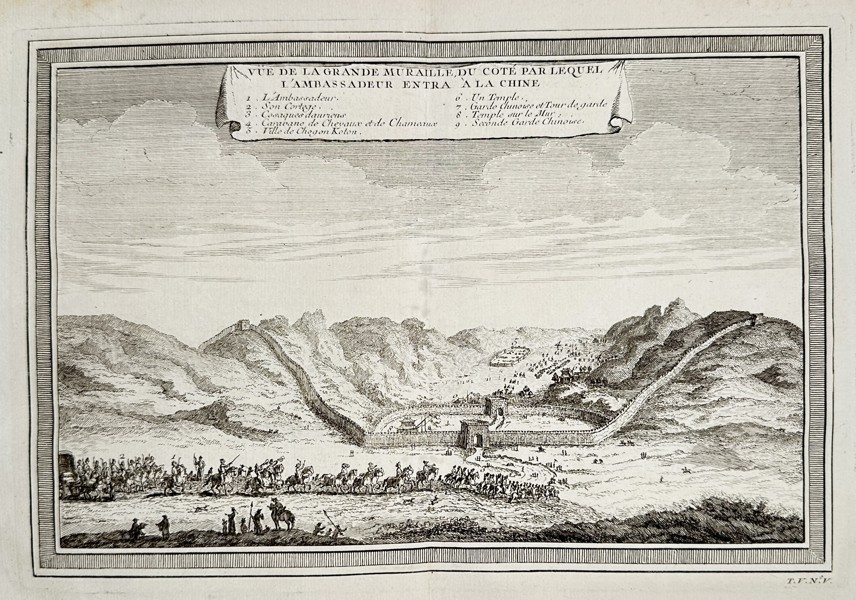 VÜE DE LA GRANDE MURAILLE, DU COTÉ PAR LEQUEL
L'AMBASSADEUR ENTRA A LA CHINE
1. L'Ambassadeur.
2. Son Cortege.
3. Cosaques dauriens
4. Caravane de Chevaux et de Chameaux
5. Ville de Chogon Koton.
6. Un Temple.
7. Garde Chinoise et Tour de garde
8. Temple sur le Mur.
9. Seconde Garde Chinoise.
T. V. N.º V.